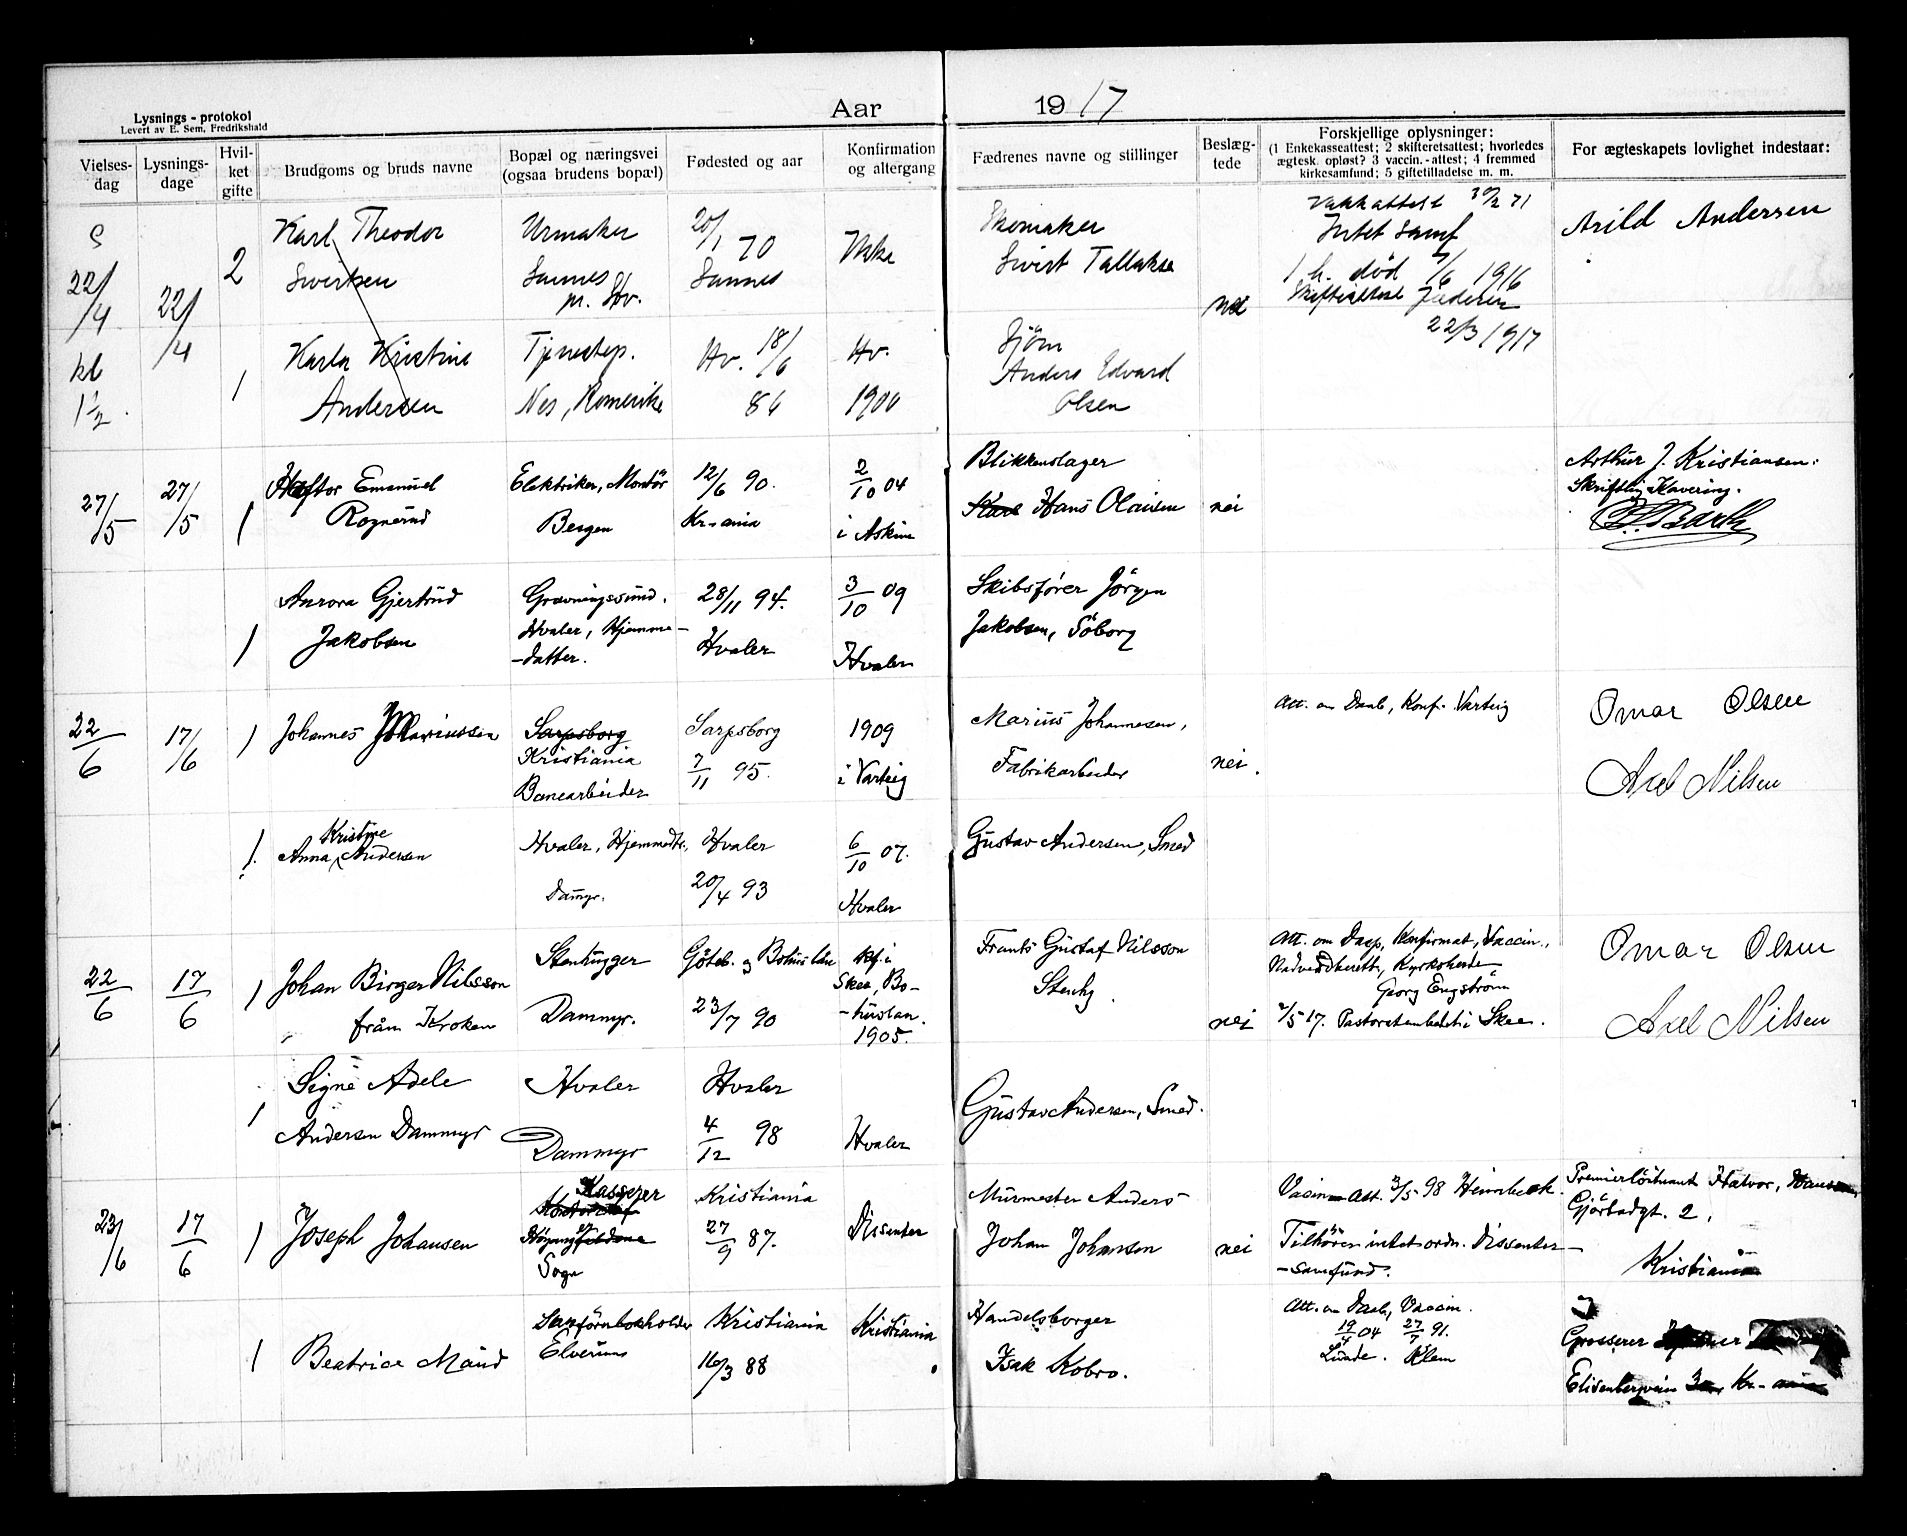 Lysnings - protokol
Levert av E. Sem, Fredrikshald
Aar 1917
Vielses-dag
Lysnings-dage
Hvil-ket gifte
Brudgoms og bruds navne
Bopæl og næringsvei (ogsaa brudens bopæl)
Fødested og aar
Konfirmation og altergang
Fædrenes navne og stillinger
Beslæg-tede
Forskjellige oplysninger:
(1 Enkekasseattest; 2 skifteretsattest; hvorledes
ægtesk. opløst? 3 vaccin.-attest; 4 fremmed
kirkesamfund; 5 giftetilladelse m. m.
For ægteskapets lovlighet indestaar:
S 22/4 kl 1½
22/4
2
Karl Theodor
Sivertsen
Urmaker
Sannes
20/1 70
Sannes
Skomaker
Sivert Tallakse
Vakkattest 30/2 71
Intet samf
1 h. død 7/6 1916
Skifteattest Jæderen
22/3 1917
Arild Andersen
1
Karla Kristine
Andersen
Tjenestep.
Nes, Romerike
Hv. 18/6
86
Hv.
1900
Anders Edvard
Olsen
27/5
27/5
1
Haftor Emanuel
Rognerud
Elektriker, Montör
Bergen
12/6 90.
Kr-ania
2/10 04
i Askim
Blikkenslager
Hans Olausen
nei
Arthur J. Kristiansen.
1
Aurora Gjertrud
Jakobsen
Gravningssund.
Hvaler, Hjemme-
-datter.
28/11 94.
Hvaler
3/10 09
Hvaler
Skibsfører Jörgen
Jakobsen, Söborg
22/6
17/6
1
Johannes Mariussen
Sarpsborg
Kristiania
Banearbeider
Sarpsborg
7/11 95.
1909
i Varteig
Marius Johannesen,
Fabrikarbeider
nei.
Att. om Daab, Konf. Varteig
Omar Olsen
Axel Nilsen
1.
Kristine
Anna Andersen
Hvaler, Hjemmedtr.,
Damyr.
Hvaler
20/4 93
6/10 07.
Hvaler
Gustav Andersen, Smed
22/6
17/6
1
Johan Birger Nilsson
från Kroken
Stenhugger
Dammyr.
Göteb. og Bohus län
23/7 90
Skee, Bo-
-huslän.
1905.
Frants Gustaf Nilsson
Stenhg.
nei
Att. om Daap, Konfirmat, Vaccin.,
Georg Engström
2/5 17. Pastorsembetet i Skee.
Omar Olsen
Axel Nilsen
1
Signe Adele
Andersen Dammyr
Hvaler
Dammyr
Hvaler
4/12 98
Hvaler
Gustav Andersen, Smed.
23/6
17/6
1
Joseph Johansen
Kasserer
Sogn
Kristiania
27/9 87.
Dissenter
Murmester Anders
Johan Johansen
nei
Vaccin Att. 3/5 98
Tilhörer intet ordn. Dissenter-
-samfund.
Premierlöitnant Halvor, Hansen
Kristiania
1
Beatrice Maud
Elverum
Kristiania
16/3 88
Kristiania
Handelsborger
Isak Kobro.
Att. om Daab, Vaccin.
19/4 04 27/7 91.
Grosserer
Elisenbergveien Kr-ania